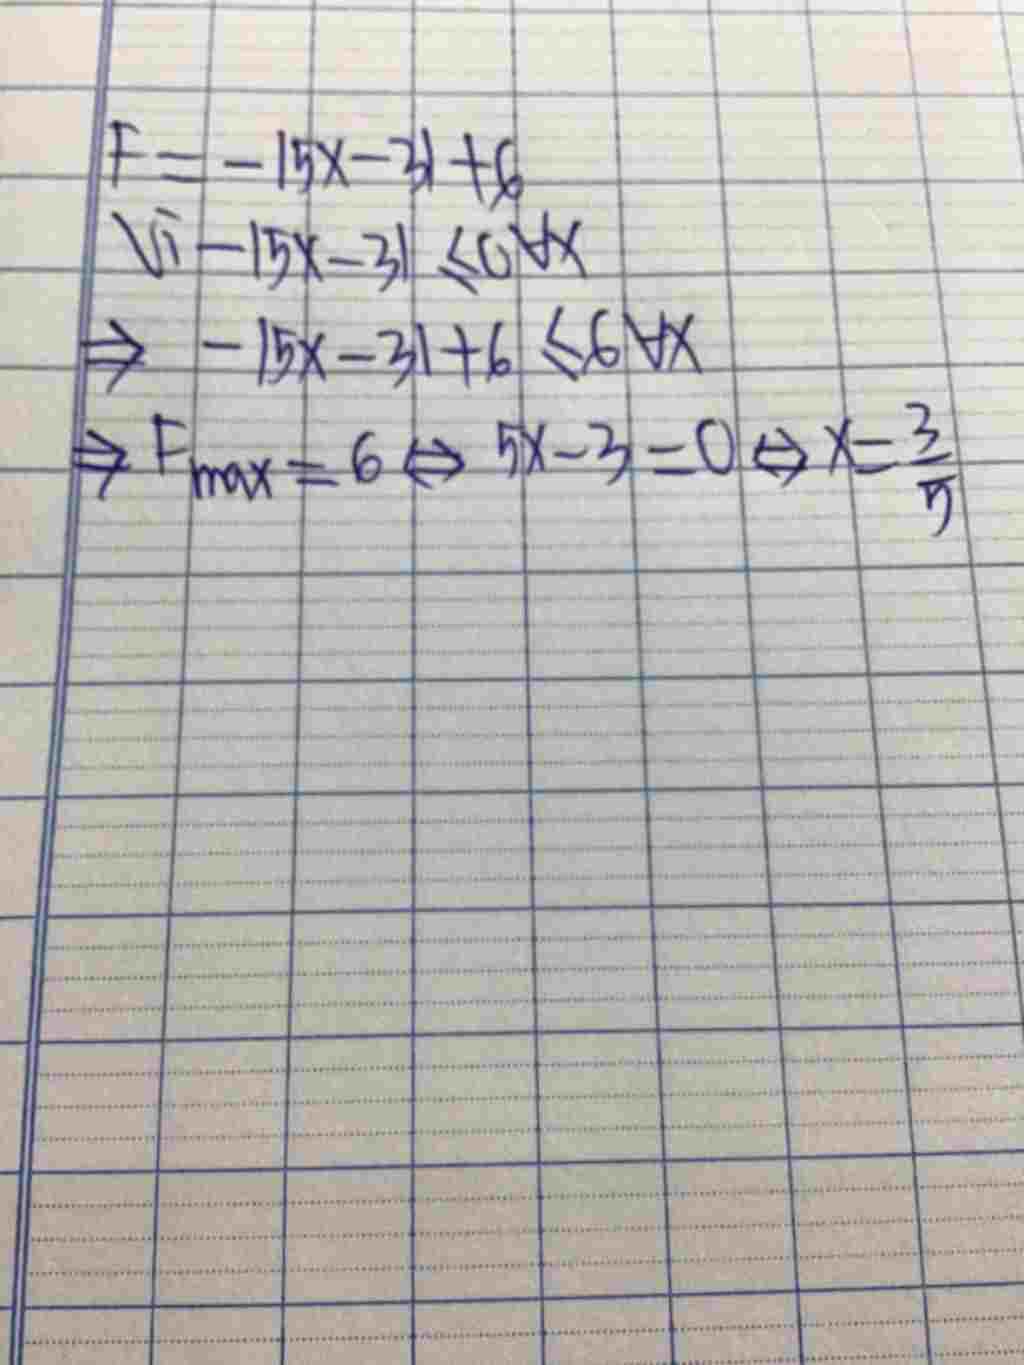 F = -|5x-3|+6
Vì -|5x-3| ≤0 ∀x
⇒ -|5x-3|+6 ≤6 ∀x
⇒ Fmax = 6 ⇔ 5x-3=0 ⇔ x=3/5